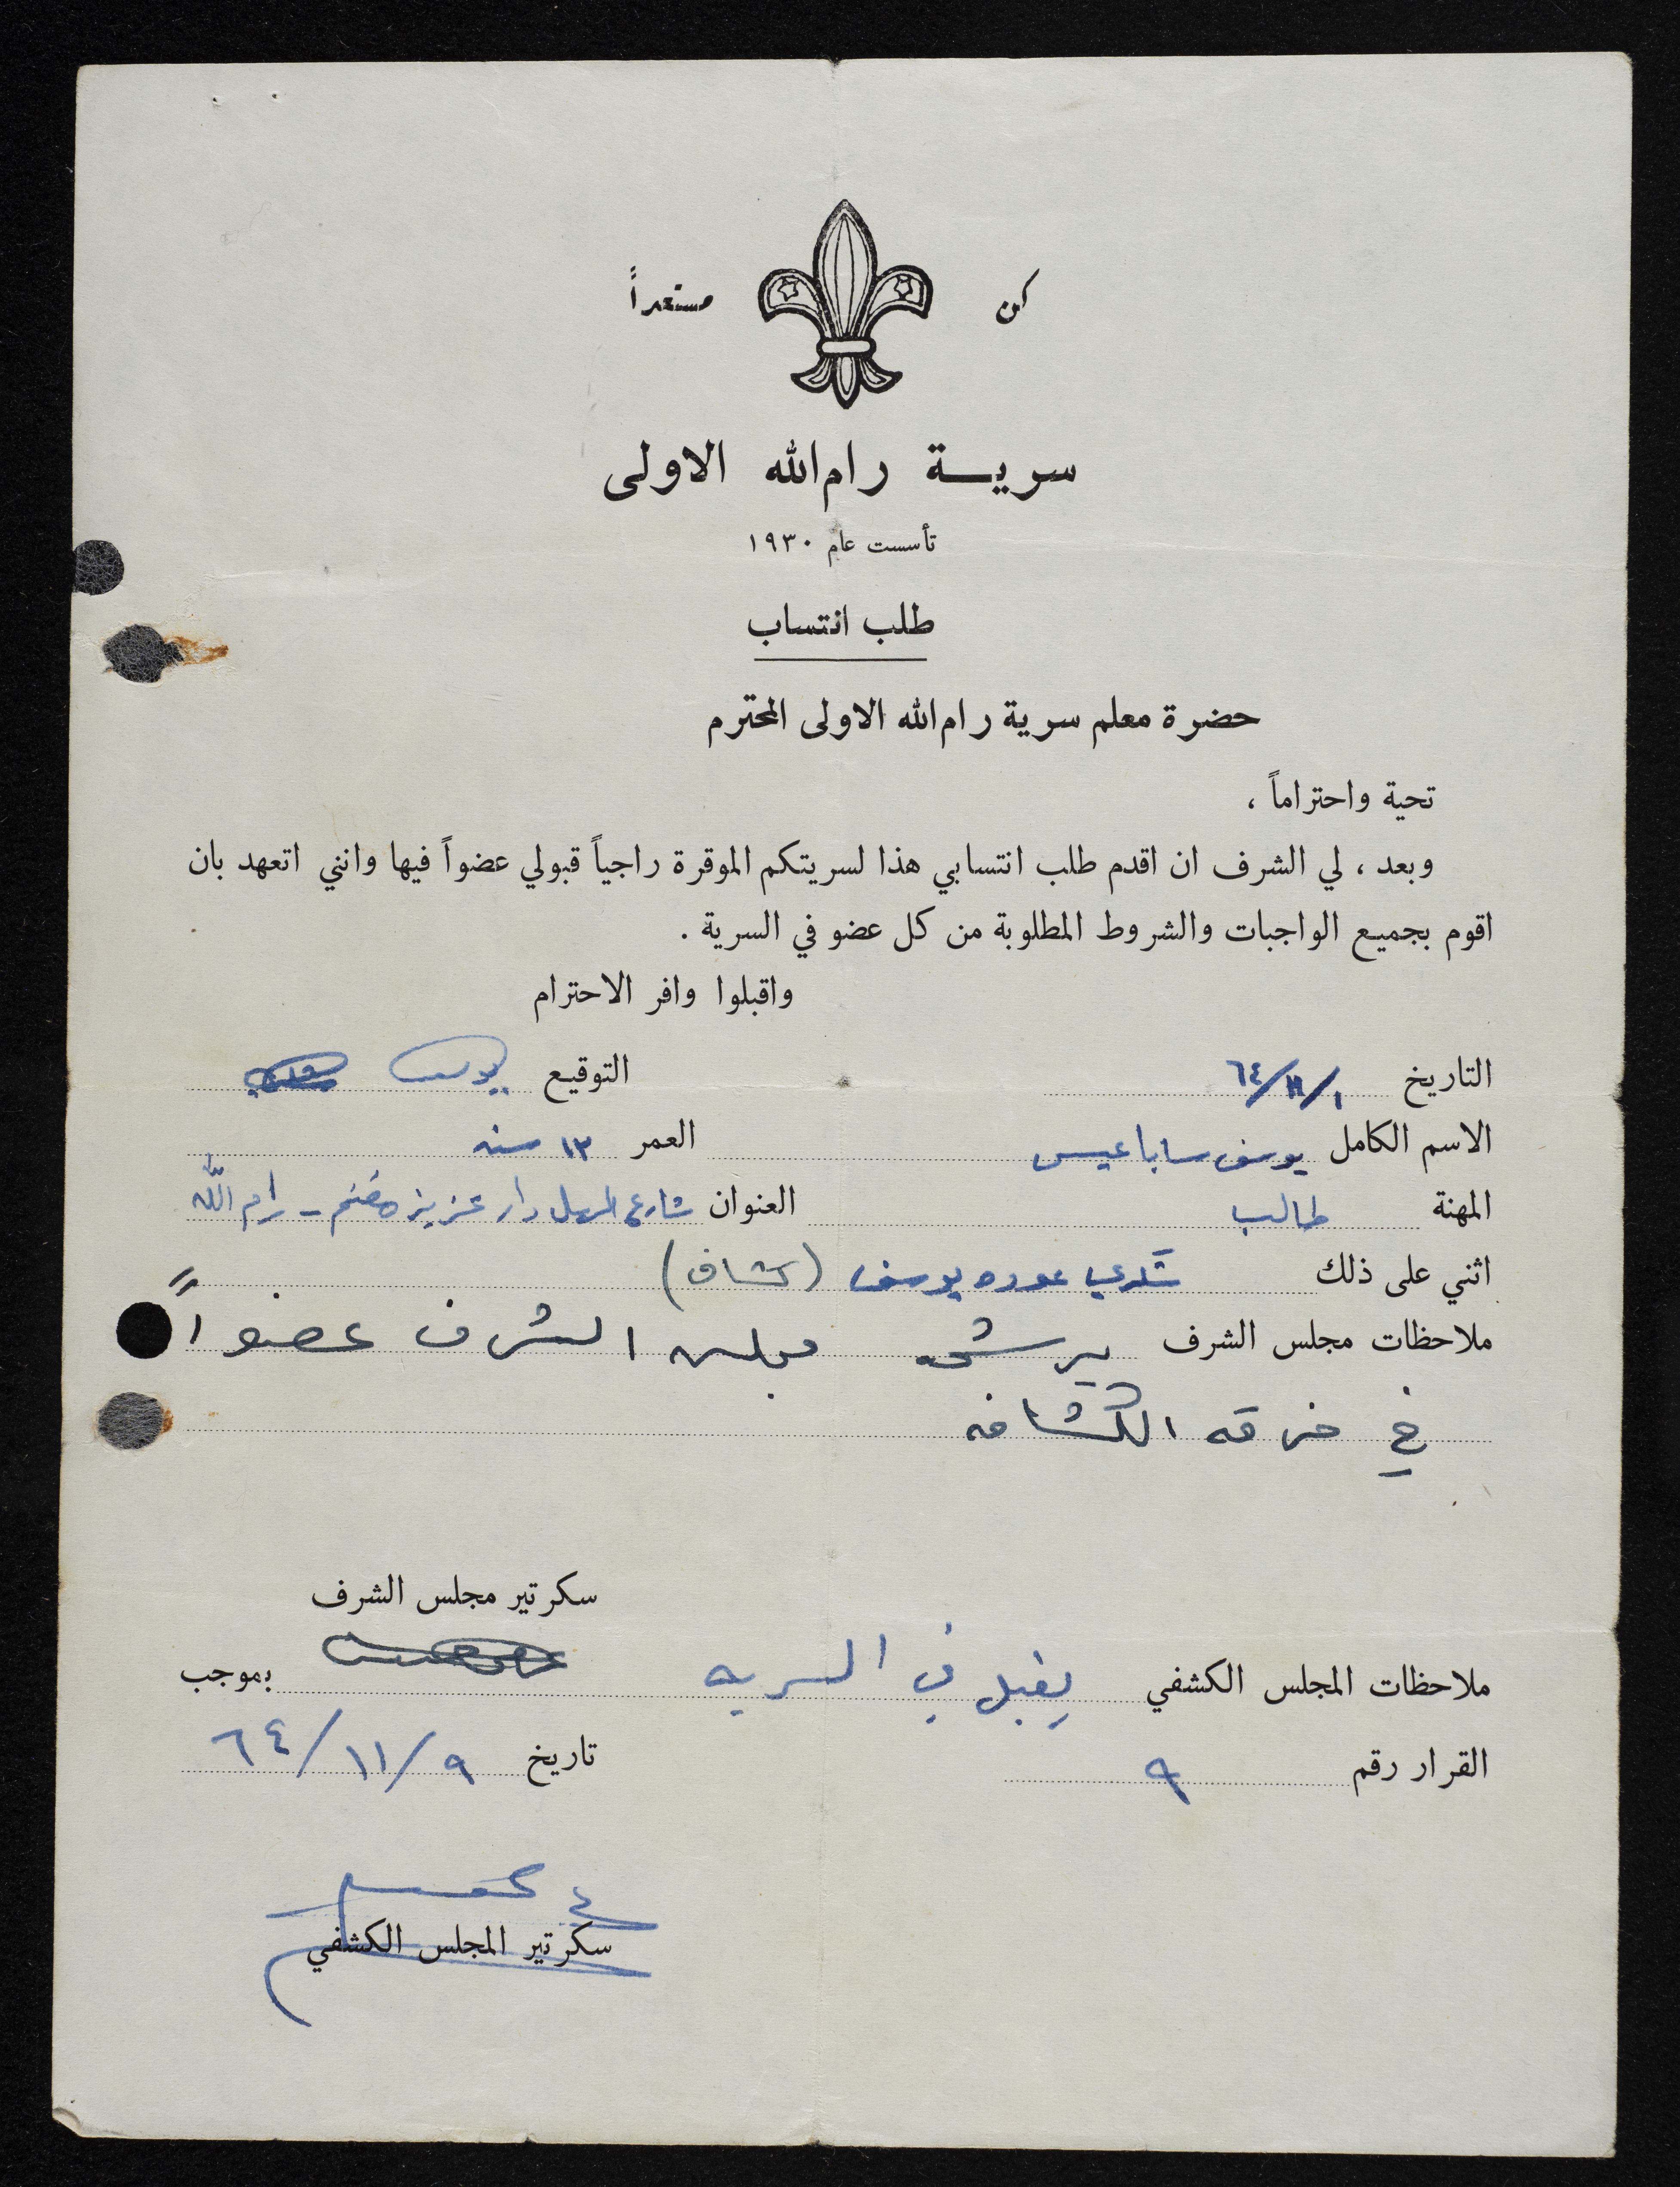 كن مستعداً
سرية رام الله الاولى
تأسست عام ١٩٣٠
طلب انتساب
حضرة معلم سرية رام الله الاولى المحترم
تحية واحتراماً ،
وبعد ، لي الشرف ان اقدم طلب انتسابي هذا لسريتكم الموقرة راجياً قبولي عضواً فيها وانني اتعهد بان
اقوم بجميع الواجبات والشروط المطلوبة من كل عضو في السرية .
واقبلوا وافر الاحترام
التاريخ ١/١١/٦٤ التوقيع يوسف
الاسم الكامل يوسف سابا عيسى العمر ١٣ سنه
المهنة طالب العنوان شارع السهل دار عزيز - رام الله
اثني على ذلك شكري عوده يوسف (كشاف)
ملاحظات مجلس الشرف يرشحه مجلس الشرف عضواً
في فرقه الكشافه
سكرتير مجلس الشرف
ملاحظات المجلس الكشفي يقبل في السريه بموجب
القرار رقم ٩ تاريخ ٩/١١/٦٤
سكرتير المجلس الكشفي